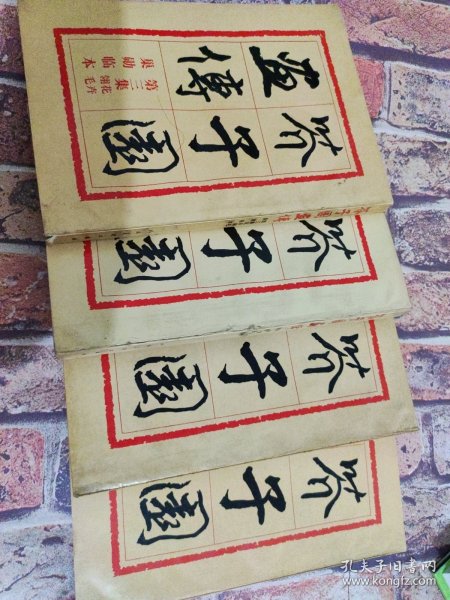 芥子園
畫傳
第三集
花卉
翎毛
巢勋临本
芥子園
芥子園
芥子園
孔夫子旧书网
www.kongfz.com